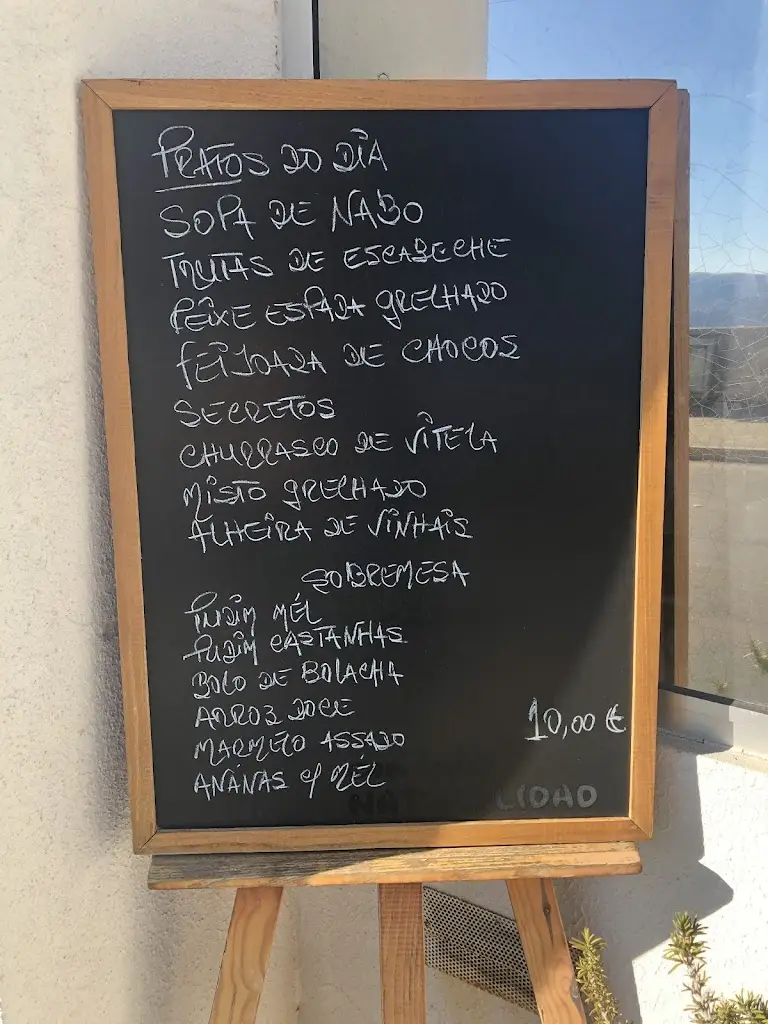 PRATOS DO DIA
SOPA DE NABO
TRUTAS DE ESCABECHE
PEIXE ESPADA GRELHADO
FEIJOADA DE CHOCOS
SECRETOS
CHURRASCO DE VITELA
MISTO GRELHADO
ALHEIRA DE VINHAIS
SOBREMESA
PUDIM MÉL
PUDIM CASTANHAS
BOLO DE BOLACHA
ARROZ DOCE
10,00 €
MARMELO ASSADO
ANANAS C/ MÉL